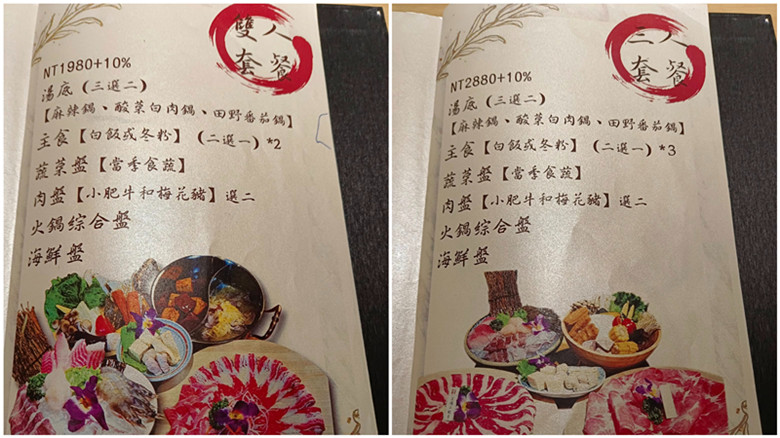 雙人
套餐
NT1980+10%
湯底（三選二）
【麻辣鍋、酸菜白肉鍋、田野番茄鍋】
主食【白飯或冬粉】（二選一）*2
蔬菜盤【當季食蔬】
肉盤【小肥牛和梅花豬】選二
火鍋綜合盤
海鮮盤
三人
套餐
NT2880+10%
湯底（三選二）
【麻辣鍋、酸菜白肉鍋、田野番茄鍋】
主食【白飯或冬粉】（二選一）*3
蔬菜盤【當季食蔬】
肉盤【小肥牛和梅花豬】選二
火鍋綜合盤
海鮮盤